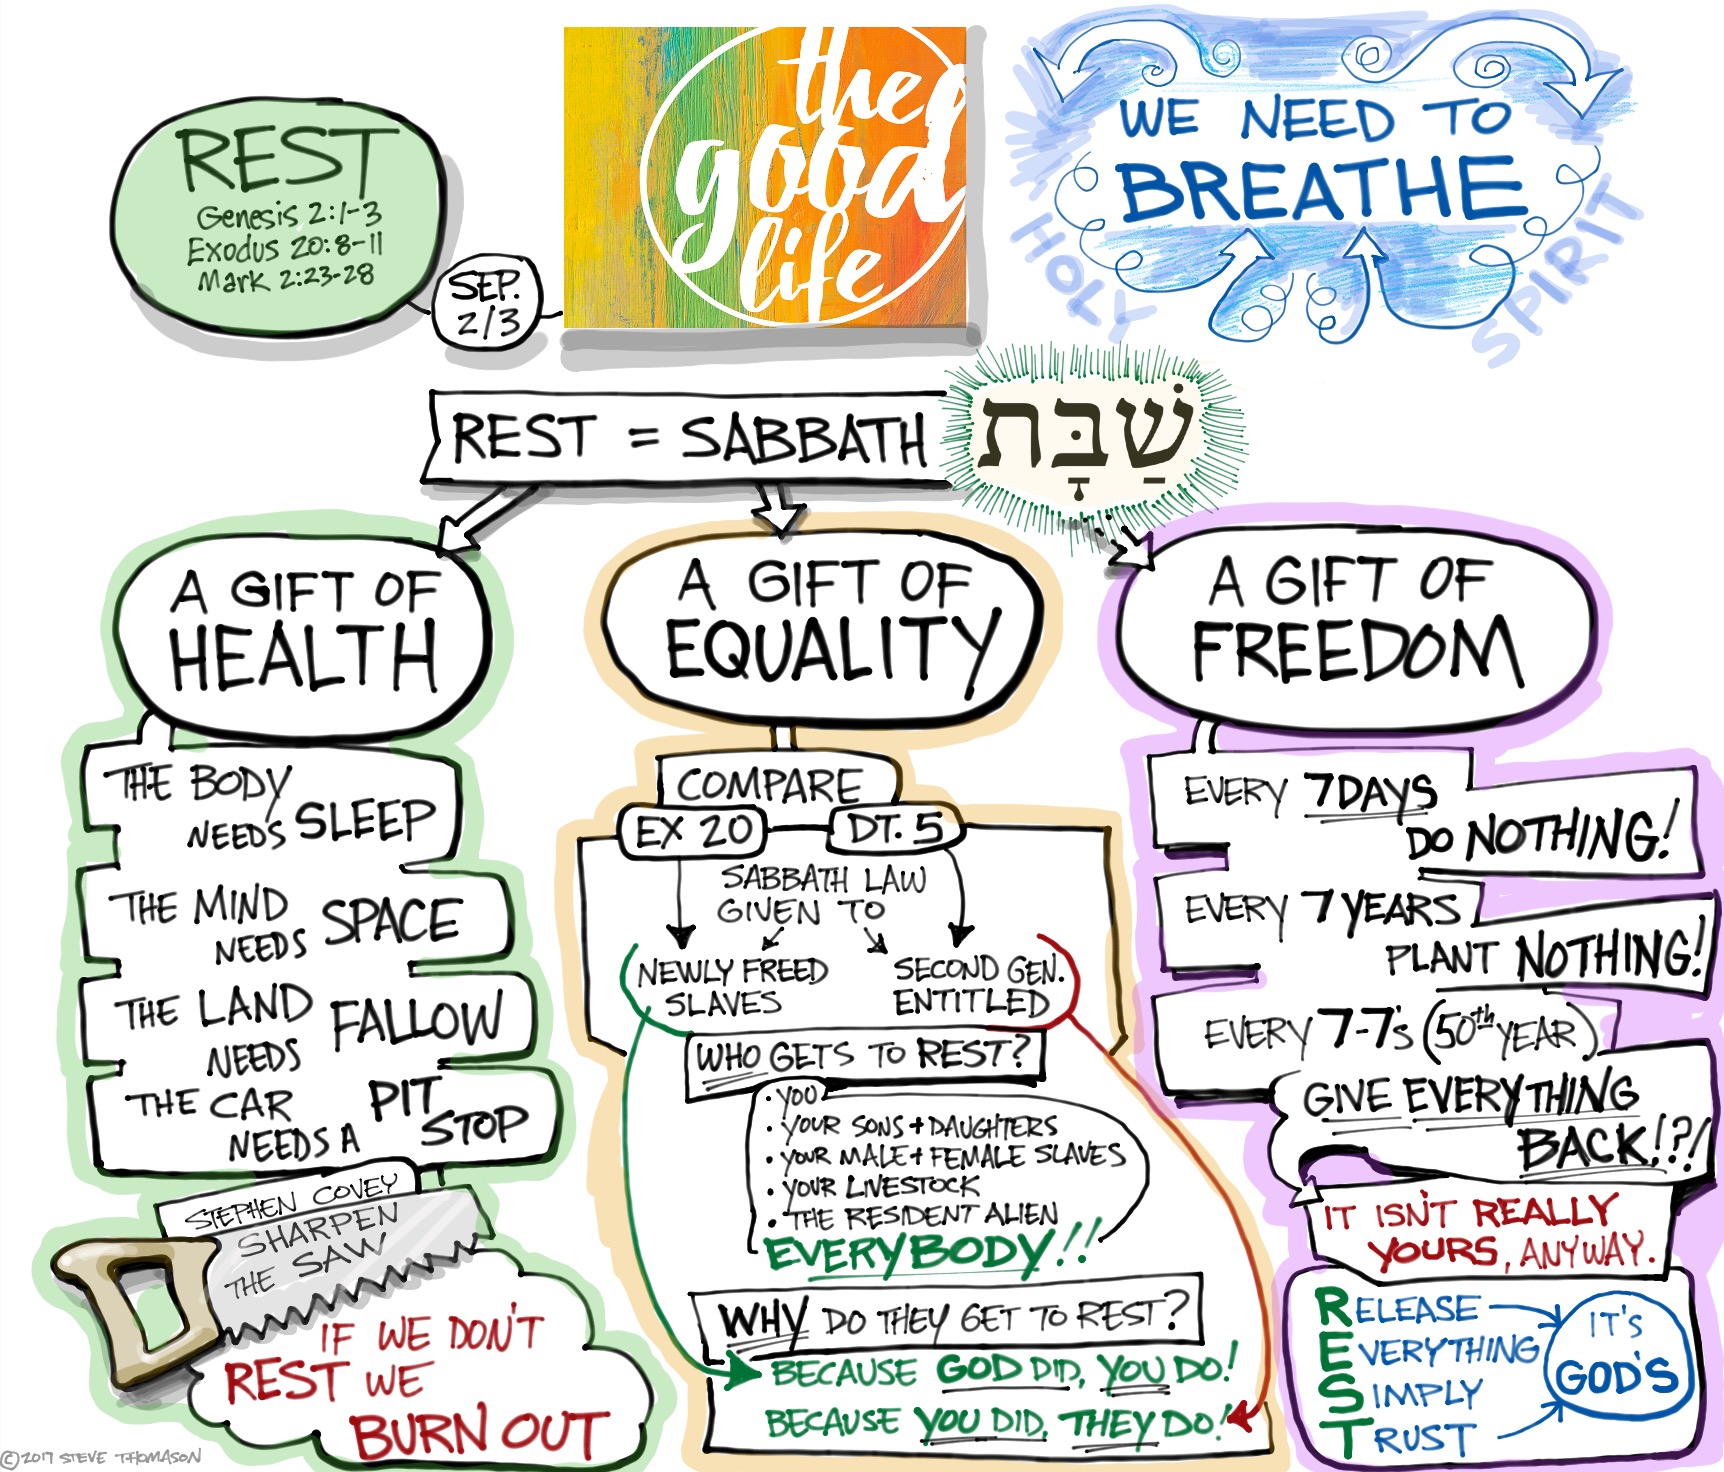 REST
Genesis 2:1-3
Exodus 20:8-11
Mark 2:23-28
SEP.
2/3
the
good
life
WE NEED TO
BREATHE
HOLY
SPIRIT
REST = SABBATH
שַׁבָּת
A GIFT OF
HEALTH
THE BODY
NEEDS SLEEP
THE MIND
NEEDS SPACE
THE LAND
NEEDS FALLOW
THE CAR
NEEDS A PIT
STOP
STEPHEN COVEY
SHARPEN
THE SAW
IF WE DON'T
REST WE
BURN OUT
A GIFT OF
EQUALITY
COMPARE
EX 20
DT. 5
SABBATH LAW
GIVEN TO
NEWLY FREED
SLAVES
SECOND GEN.
ENTITLED
WHO GETS TO REST?
• YOU
• YOUR SONS + DAUGHTERS
• YOUR MALE + FEMALE SLAVES
• YOUR LIVESTOCK
• THE RESIDENT ALIEN
EVERYBODY!!
WHY DO THEY GET TO REST?
BECAUSE GOD DID, YOU DO!
BECAUSE YOU DID, THEY DO!
A GIFT OF
FREEDOM
EVERY 7 DAYS
DO NOTHING!
EVERY 7 YEARS
PLANT NOTHING!
EVERY 7-7's (50th YEAR)
GIVE EVERYTHING
BACK!?!
IT ISN'T REALLY
YOURS, ANYWAY.
RELEASE
EVERYTHING
SIMPLY
TRUST
IT'S
GOD'S
©2017 STEVE THOMASON